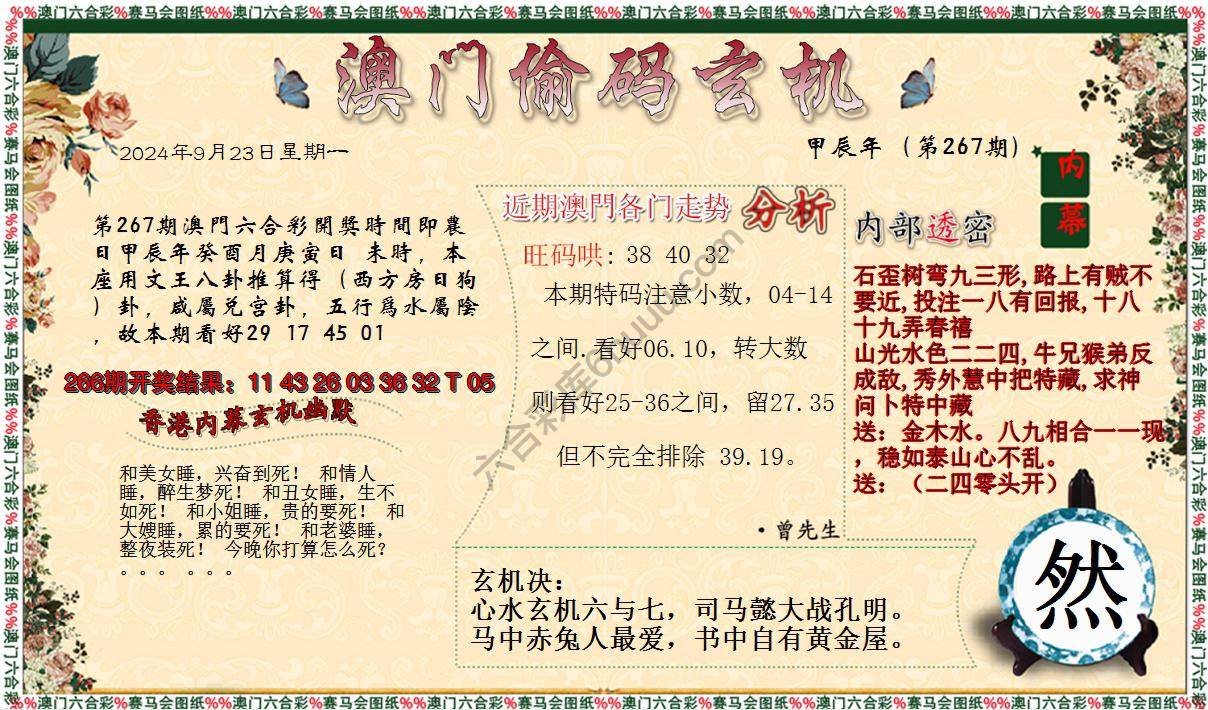 %%澳门六合彩%赛马会图纸%%澳门六合彩%赛马会图纸%%澳门六合彩%赛马会图纸%%澳门六合彩%赛马会图纸%%澳门六合彩%赛马会图纸%%澳门六合彩%赛马会图纸%%
澳门偷码玄机
2024年9月23日星期一
甲辰年（第267期）
内
幕
第267期澳門六合彩開獎時間即農
日甲辰年癸酉月庚寅日 未時，本
座用文王八卦推算得（西方房日狗
）卦，咸屬兑宫卦，五行爲水屬陰
，故本期看好29 17 45 01
266期开奖结果：11 43 26 03 36 32 T 05
香港内幕玄机幽默
和美女睡，兴奋到死！ 和情人
睡，醉生梦死！ 和丑女睡，生不
如死！ 和小姐睡，贵的要死！ 和
大嫂睡，累的要死！ 和老婆睡，
整夜装死！ 今晚你打算怎么死？
。。。 。。。
近期澳門各门走势 分析
旺码哄：38 40 32
本期特码注意小数，04-14
之间.看好06.10，转大数
则看好25-36之间，留27.35
但不完全排除 39.19。
·曾先生
内部透密
石歪树弯九三形,路上有贼不
要近,投注一八有回报,十八
十九弄春禧
山光水色二二四,牛兄猴弟反
成敌,秀外慧中把特藏,求神
问卜特中藏
送：金木水。八九相合一一现
，稳如泰山心不乱。
送：（二四零头开）
玄机决：
心水玄机六与七，司马懿大战孔明。
马中赤兔人最爱，书中自有黄金屋。
然
六合彩库6huuu.com
%%澳门六合彩%赛马会图纸%%澳门六合彩%赛马会图纸%%澳门六合彩%赛马会图纸%%澳门六合彩%赛马会图纸%%澳门六合彩%赛马会图纸%%澳门六合彩%赛马会图纸%%